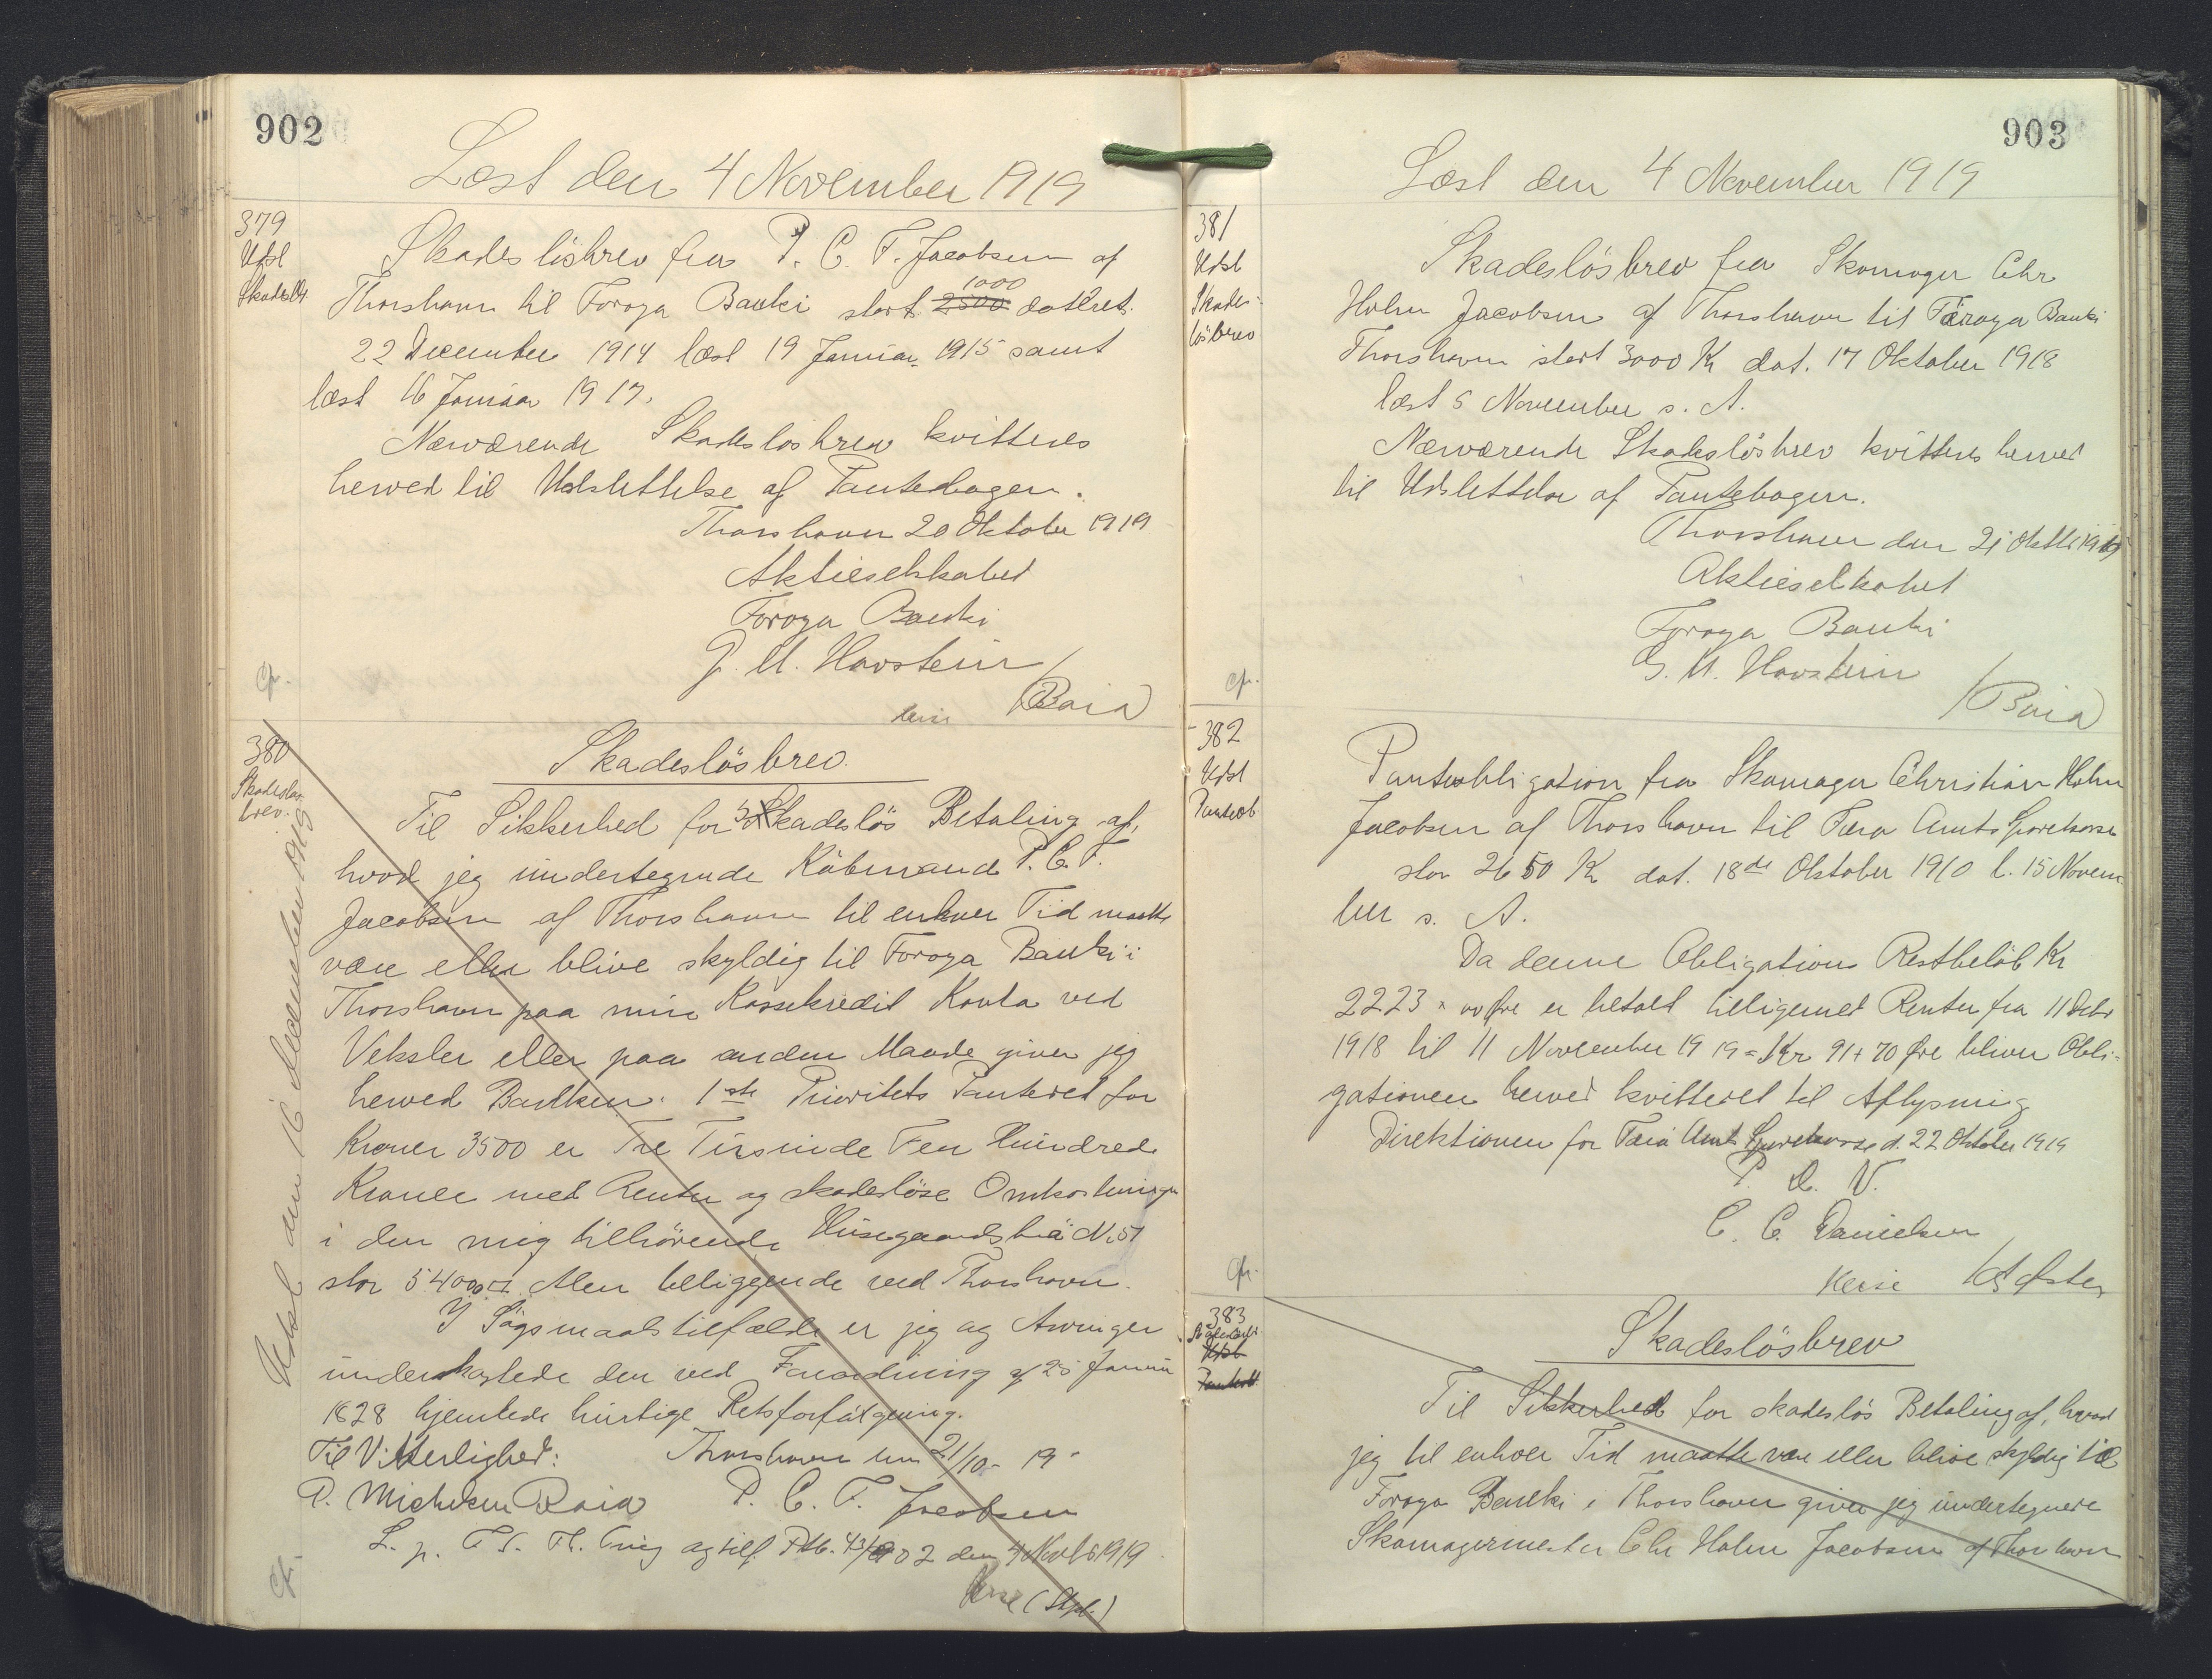 902
Læst den 4 November 1919
379
Udsl
Skadeslb.
Skadesløsbrev fra P. C. F. Jacobsen af
1000
Thorshavn til Foroya Banki stort 2500 dateret
22 December 1914 læst 19 Januar 1915 samt
læst 16 Januar 1917.
Nærværende Skadesløsbrev kvitteres
herved til Udslettelse af Pantebogen.
Thorshavn 20 Oktober 1919
Aktieselskabet
Foroya Banki
J. M. Havstein
/Poia
cfr.
380
Skadesløs
brev.
Udsl den 16 December 1919
Skadesløsbrev.
Til Sikkerhed for Skadesløs Betaling af,
hvad jeg undertegnede Købmand P. C. F.
Jacobsen af Thorshavn til enhver Tid maatte
være eller blive skyldig til Foroya Banki i
Thorshavn paa min Kassekredit Konto ved
Veksler eller paa anden Maade giver jeg
herved Banken 1ste Prioritets Panteret for
Kroner 3500 er Tre Tusinde Fem Hundrede
Kroner med Renter og skadesløse Omkostninger
i den mig tilhørende Husegaardstrø No 51
stor 5400 □ Alen beliggende ved Thorshavn.
I Søgsmaalstilfælde er jeg og Arvinger
underkastede den ved Forordning af 25 Januar
1828 hjemlede hurtige Retsforfølgning.
Til Vitterlighed: Thorshavn den 21/10- 19-
D. Michelsen Poia P. C. F. Jacobsen
L. p. F. S. Th. Ting og tilf. Ptb. 43/902 den 4 Novb 1919
(Stpl.)
cfr.
903
Læst den 4 November 1919
381
Udsl
Skades-
løsbrev
Skadesløsbrev fra Skomager Chr
Holm Jacobsen af Thorshavn til Föroya Banki
Thorshavn stort 3000 Kr dat. 17 Oktober 1918
læst 5 November s. A.
Nærværende Skadesløsbrev kvitteres herved
til Udslettelse af Pantebogen.
Thorshavn den 21 Oktb 1919
Aktieselskabet
Foroya Banki
J. M. Havstein
/Poia
cfr.
382
Udsl
Panteob
Panteobligation fra Skomager Christian Holm
Jacobsen af Thorshavn til Færø Amts Sparekasse
stor 2650 Kr dat. 18de Oktober 1910 l. 15 Novem
ber s. A.
Da denne Obligations Restbeløb Kr
2223 " 00 Øre er betalt tilligemed Renter fra 11 Decbr
1918 til 11 November 1919 = Kr 91 + 70 Øre bliver Obli-
gationen herved kvitteret til Aflysning
Direktionen for Færø Amts Sparekasse d. 22 Oktober 1919
P. D. V.
C. C. Danielsen
cfr.
383
Skadesløsb
Udsl
Panteob
Skadesløsbrev
Til Sikkerhed for skadesløs Betaling af, hvad
jeg til enhver Tid maatte være eller blive skyldig til
Foroya Banki i Thorshavn giver jeg undertegnede
Skomagermester Chr Holm Jacobsen af Thorshavn